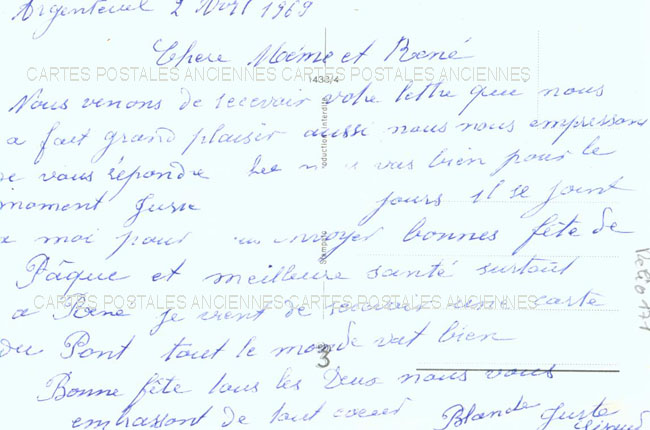 Argenteuil 2 Avril 1969
Chere Mémé et René
CARTES POSTALES ANCIENNES CARTES POSTALES ANCIENNES
1433/4
Nous venons de recevoir votre lettre que nous
a fait grand plaisir aussi nous nous empressons
de vous répondre vas bien pour le
moment Juste jours il se joint
a moi pour envoyer bonnes fête de
Pâque et meilleure santé surtout
CARTES POSTALES ANCIENNES CARTES POSTALES ANCIENNES
a René je vient de recevoir une carte
du Pont tout le monde vat bien
3
Bonne fête tous les Deux nous vous
embrassont de tout coeur Blande Juste